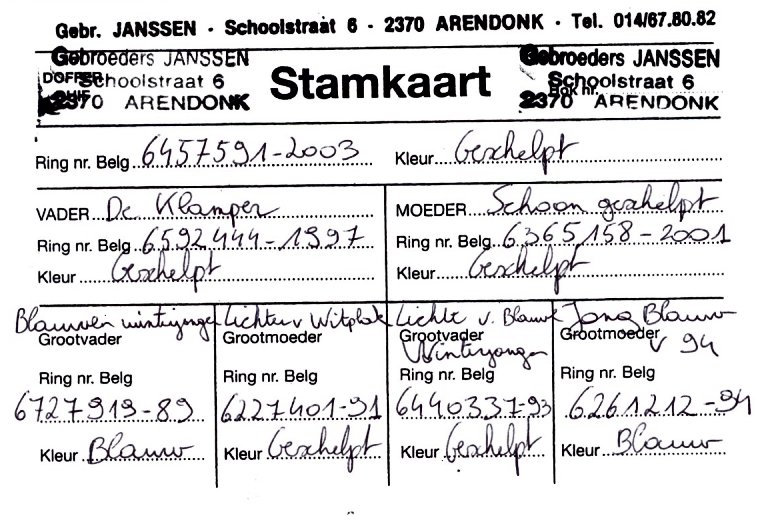 Gebr. JANSSEN · Schoolstraat 6 · 2370 ARENDONK · Tel. 014/67.80.82
Gebroeders JANSSEN
DOFFER Schoolstraat 6
2370 ARENDONK
Stamkaart
Gebroeders JANSSEN
Schoolstraat 6
Hok nr.
2370 ARENDONK
Ring nr. Belg 6457591-2003 Kleur Geschelpt
VADER De Klamper
Ring nr. Belg 6592444-1997
Kleur Geschelpt
MOEDER Schoon geschelpt
Ring nr. Belg 6365158-2001
Kleur Geschelpt
Blauwen winterjonge
Grootvader
Ring nr. Belg
6727919-89
Kleur Blauw
Lichte v Witplak
Grootmoeder
Ring nr. Belg
6227401-91
Kleur Geschelpt
Lichte v. Blauwe
Grootvader
Winterjonge
Ring nr. Belg
6440337-93
Kleur Geschelpt
Jong Blauw
Grootmoeder
v 94
Ring nr. Belg
6261212-94
Kleur Blauw